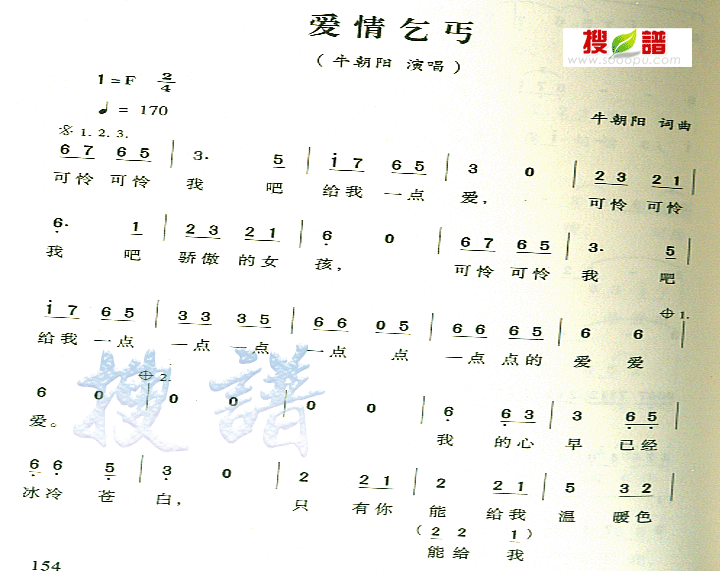 爱情乞丐
搜譜
www.sooopu.com
(牛朝阳 演唱)
1=F 2/4
♩= 170
牛朝阳 词曲
1. 2. 3.
6 7 6 5 | 3· 5 | i 7 6 5 | 3 0 | 2 3 2 1 |
可怜 可怜 我 吧 给我 一点 爱, 可怜 可怜
6· 1 | 2 3 2 1 | 6 0 | 6 7 6 5 | 3· 5 |
我 吧 骄傲 的女 孩, 可怜 可怜 我 吧
1.
i 7 6 5 | 3 3 3 5 | 6 6 0 5 | 6 6 6 5 | 6 6 |
给我 一点 一点 一点 一点 点 一点 点的 爱 爱
2.
6 0 | 0 0 | 0 0 | 6 6 3 | 3 6 5 |
爱。 我 的心 早 已经
6 6 5 | 3 0 | 2 2 1 | 2 2 1 | 5 3 2 |
冰冷 苍 白, 只 有你 能 给我 温 暖色
(2 2 1)
能给 我
搜譜
154